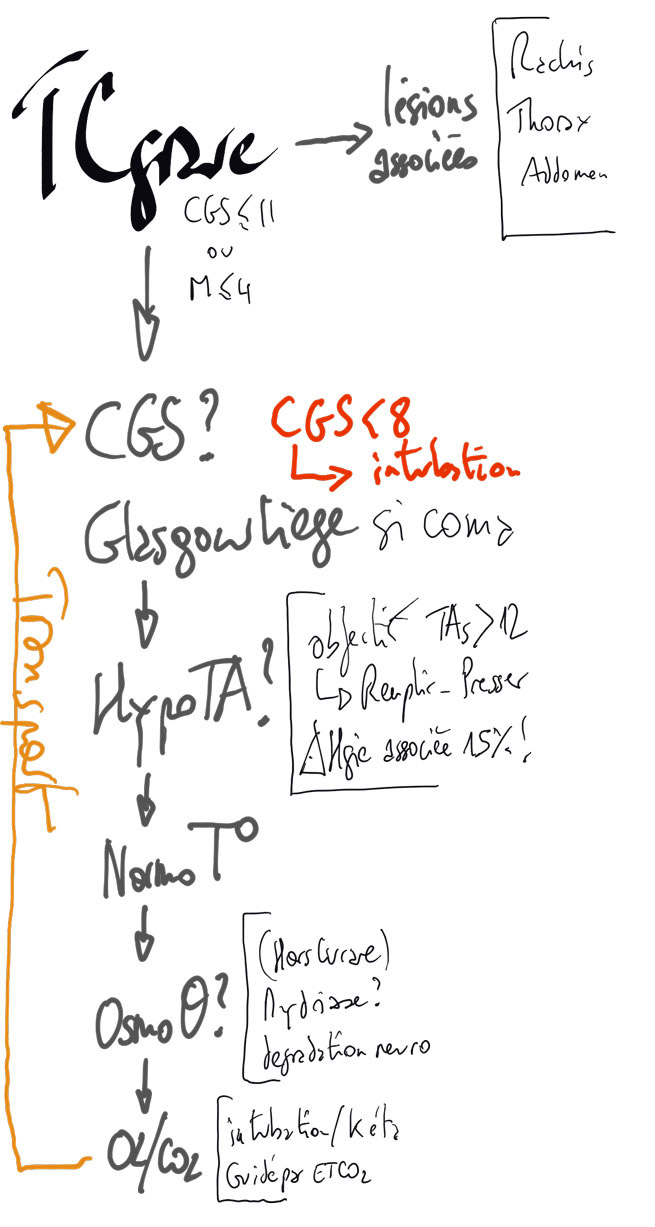 TCgrave
CGS ≤ 11
ou
M ≤ 4
lésions
associées
Rachis
Thorax
Abdomen
CGS?
CGS < 8
↳ intubation
Glasgow Liège si coma
HypoTA?
objectif TAs > 12
↳ Remplir - Presser
Δ Hgie associée 15%!
Normo T°
Osmo θ?
(Hors Curare)
Mydriase?
degradation neuro
O2/CO2
intubation/Kéta
Guidé par ETCO2
Transport